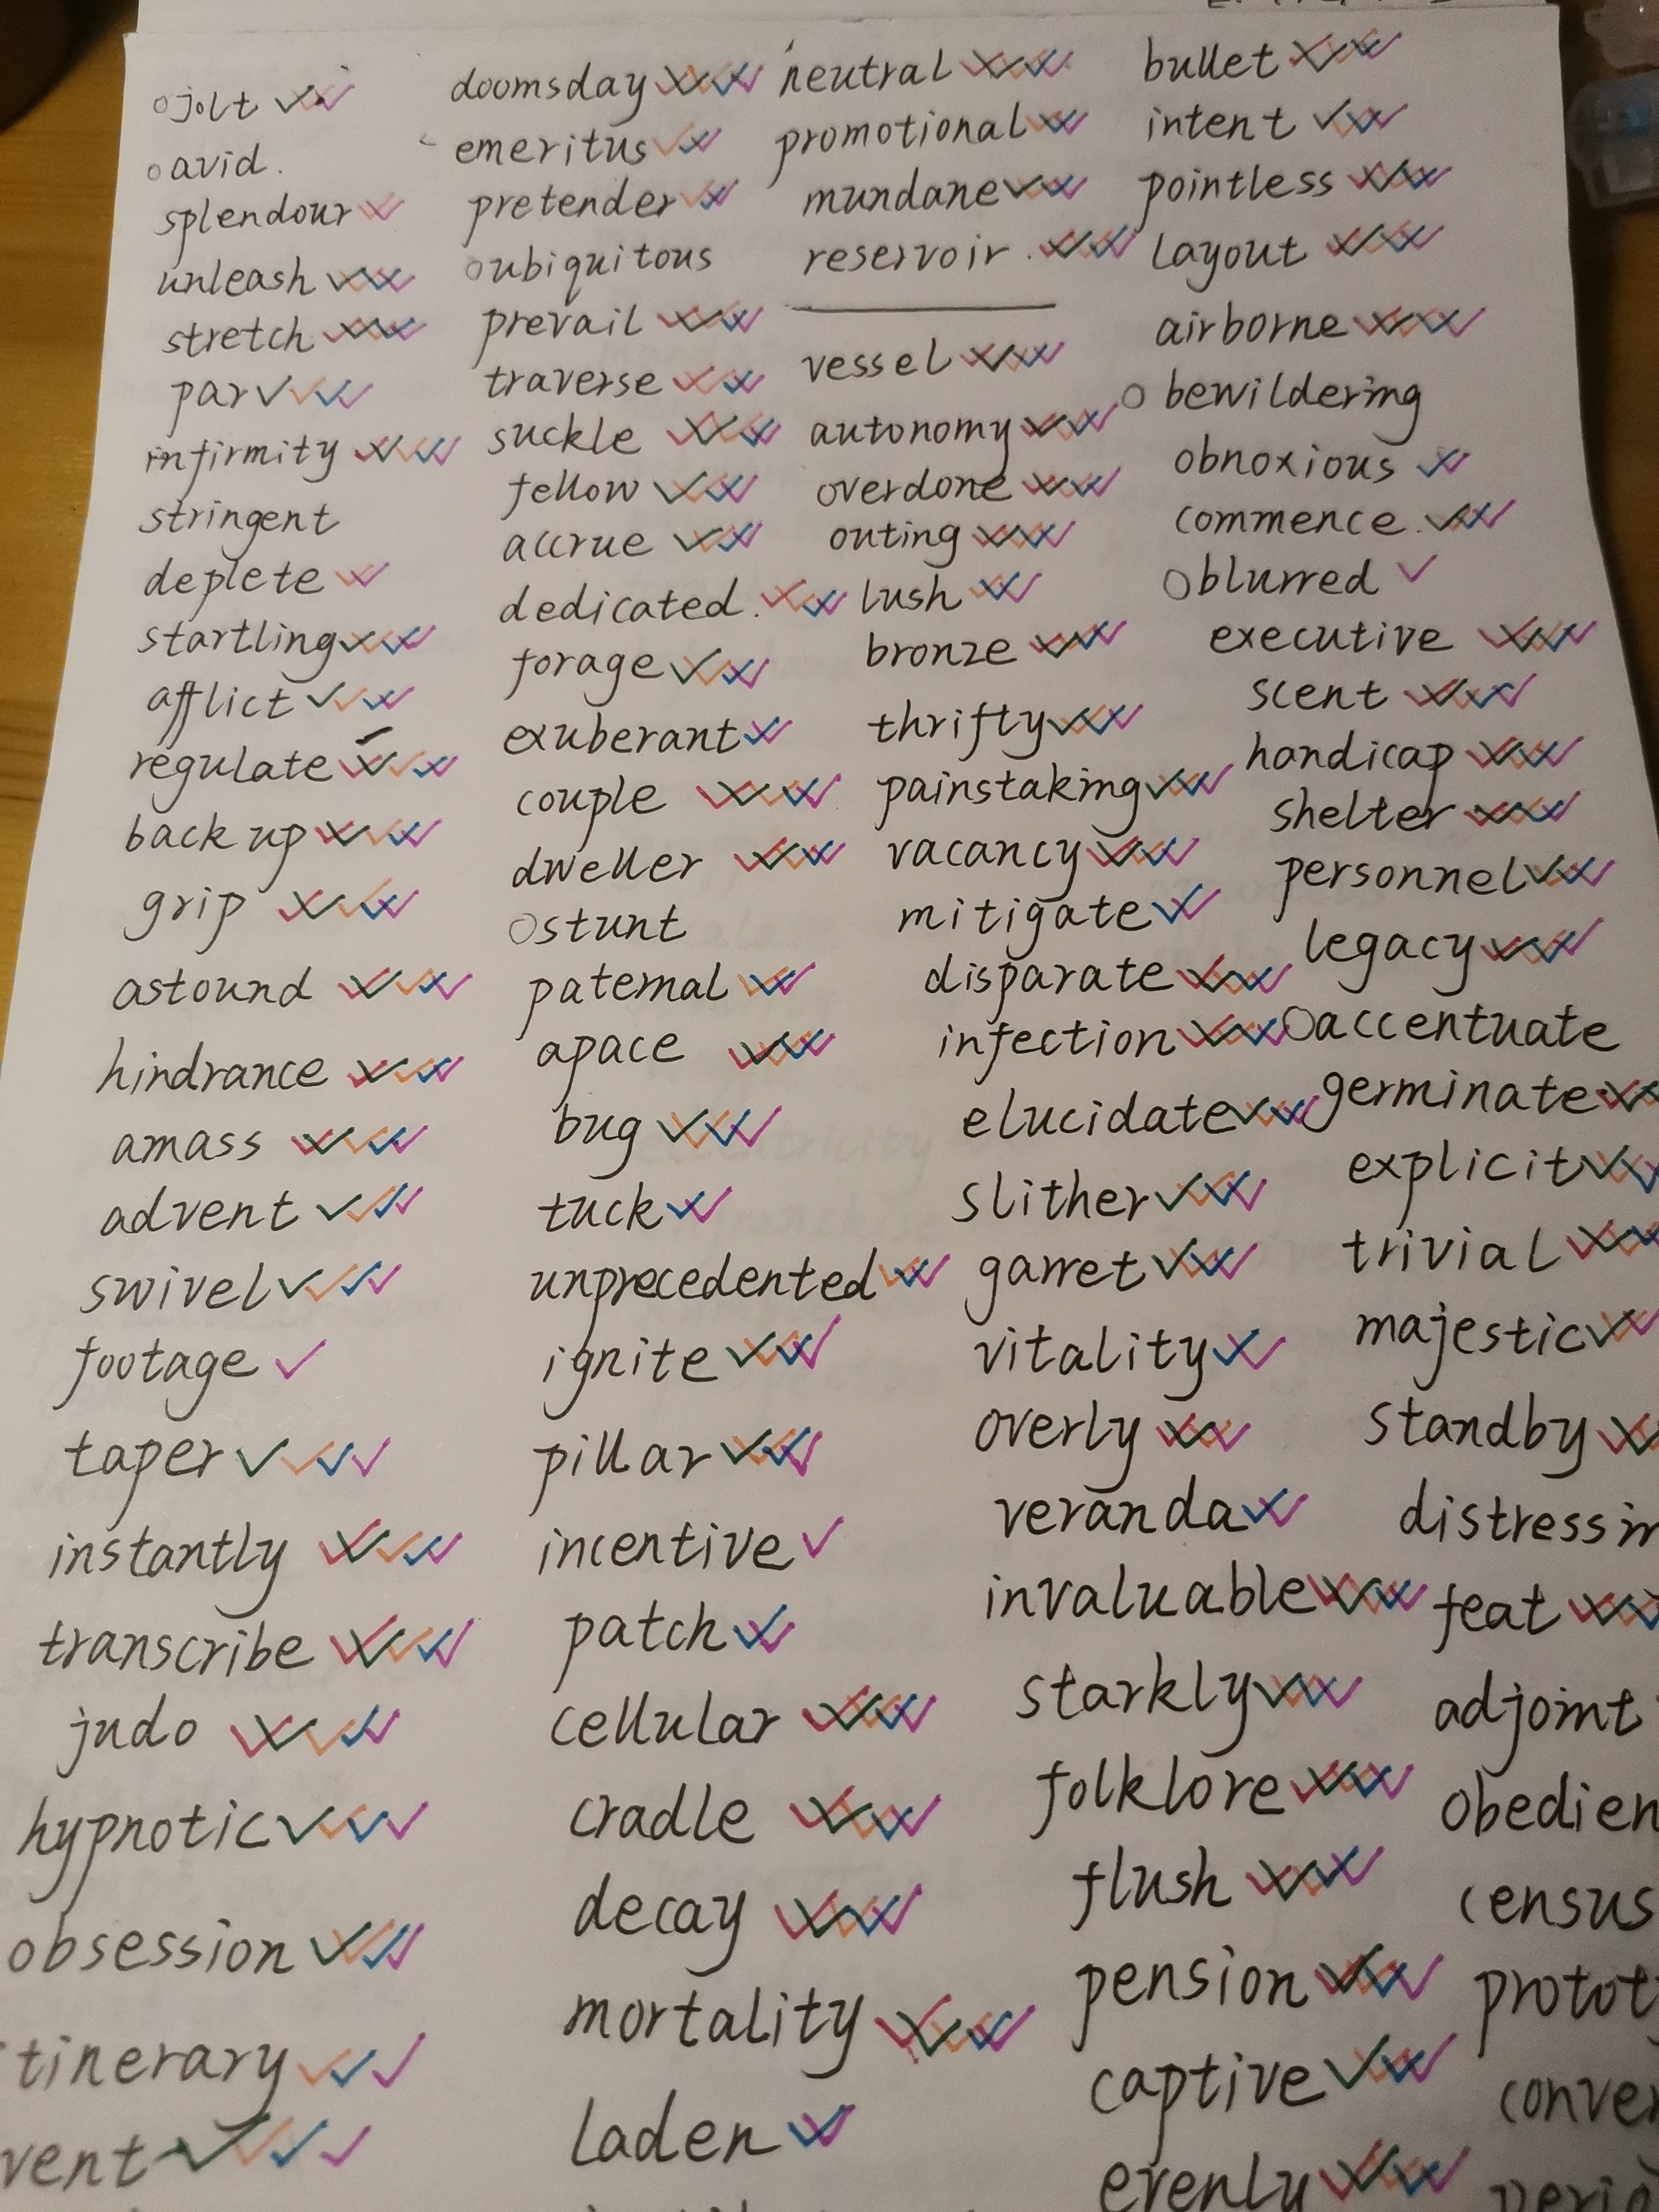 jolt
avid.
splendour
unleash
stretch
par
infirmity
stringent
deplete
startling
afflict
regulate
back up
grip
astound
hindrance
amass
advent
swivel
footage
taper
instantly
transcribe
judo
hypnotic
obsession
tinerary
vent
doomsday
emeritus
pretender
ubiquitous
prevail
traverse
suckle
fellow
accrue
dedicated.
forage
exuberant
couple
dweller
stunt
paternal
apace
bug
tuck
unprecedented
ignite
pillar
incentive
patch
cellular
cradle
decay
mortality
laden
neutral
promotional
mundane
reservoir.
vessel
autonomy
overdone
outing
lush
bronze
thrifty
painstaking
vacancy
mitigate
disparate
infection
elucidate
slither
garret
vitality
overly
veranda
invaluable
starkly
folklore
flush
pension
captive
evenly
bullet
intent
pointless
layout
airborne
bewildering
obnoxious
commence.
blurred
executive
scent
handicap
shelter
personnel
legacy
accentuate
germinate
explicit
trivial
majestic
standby
distressin
feat
adjoint
obedien
census
protot
conve